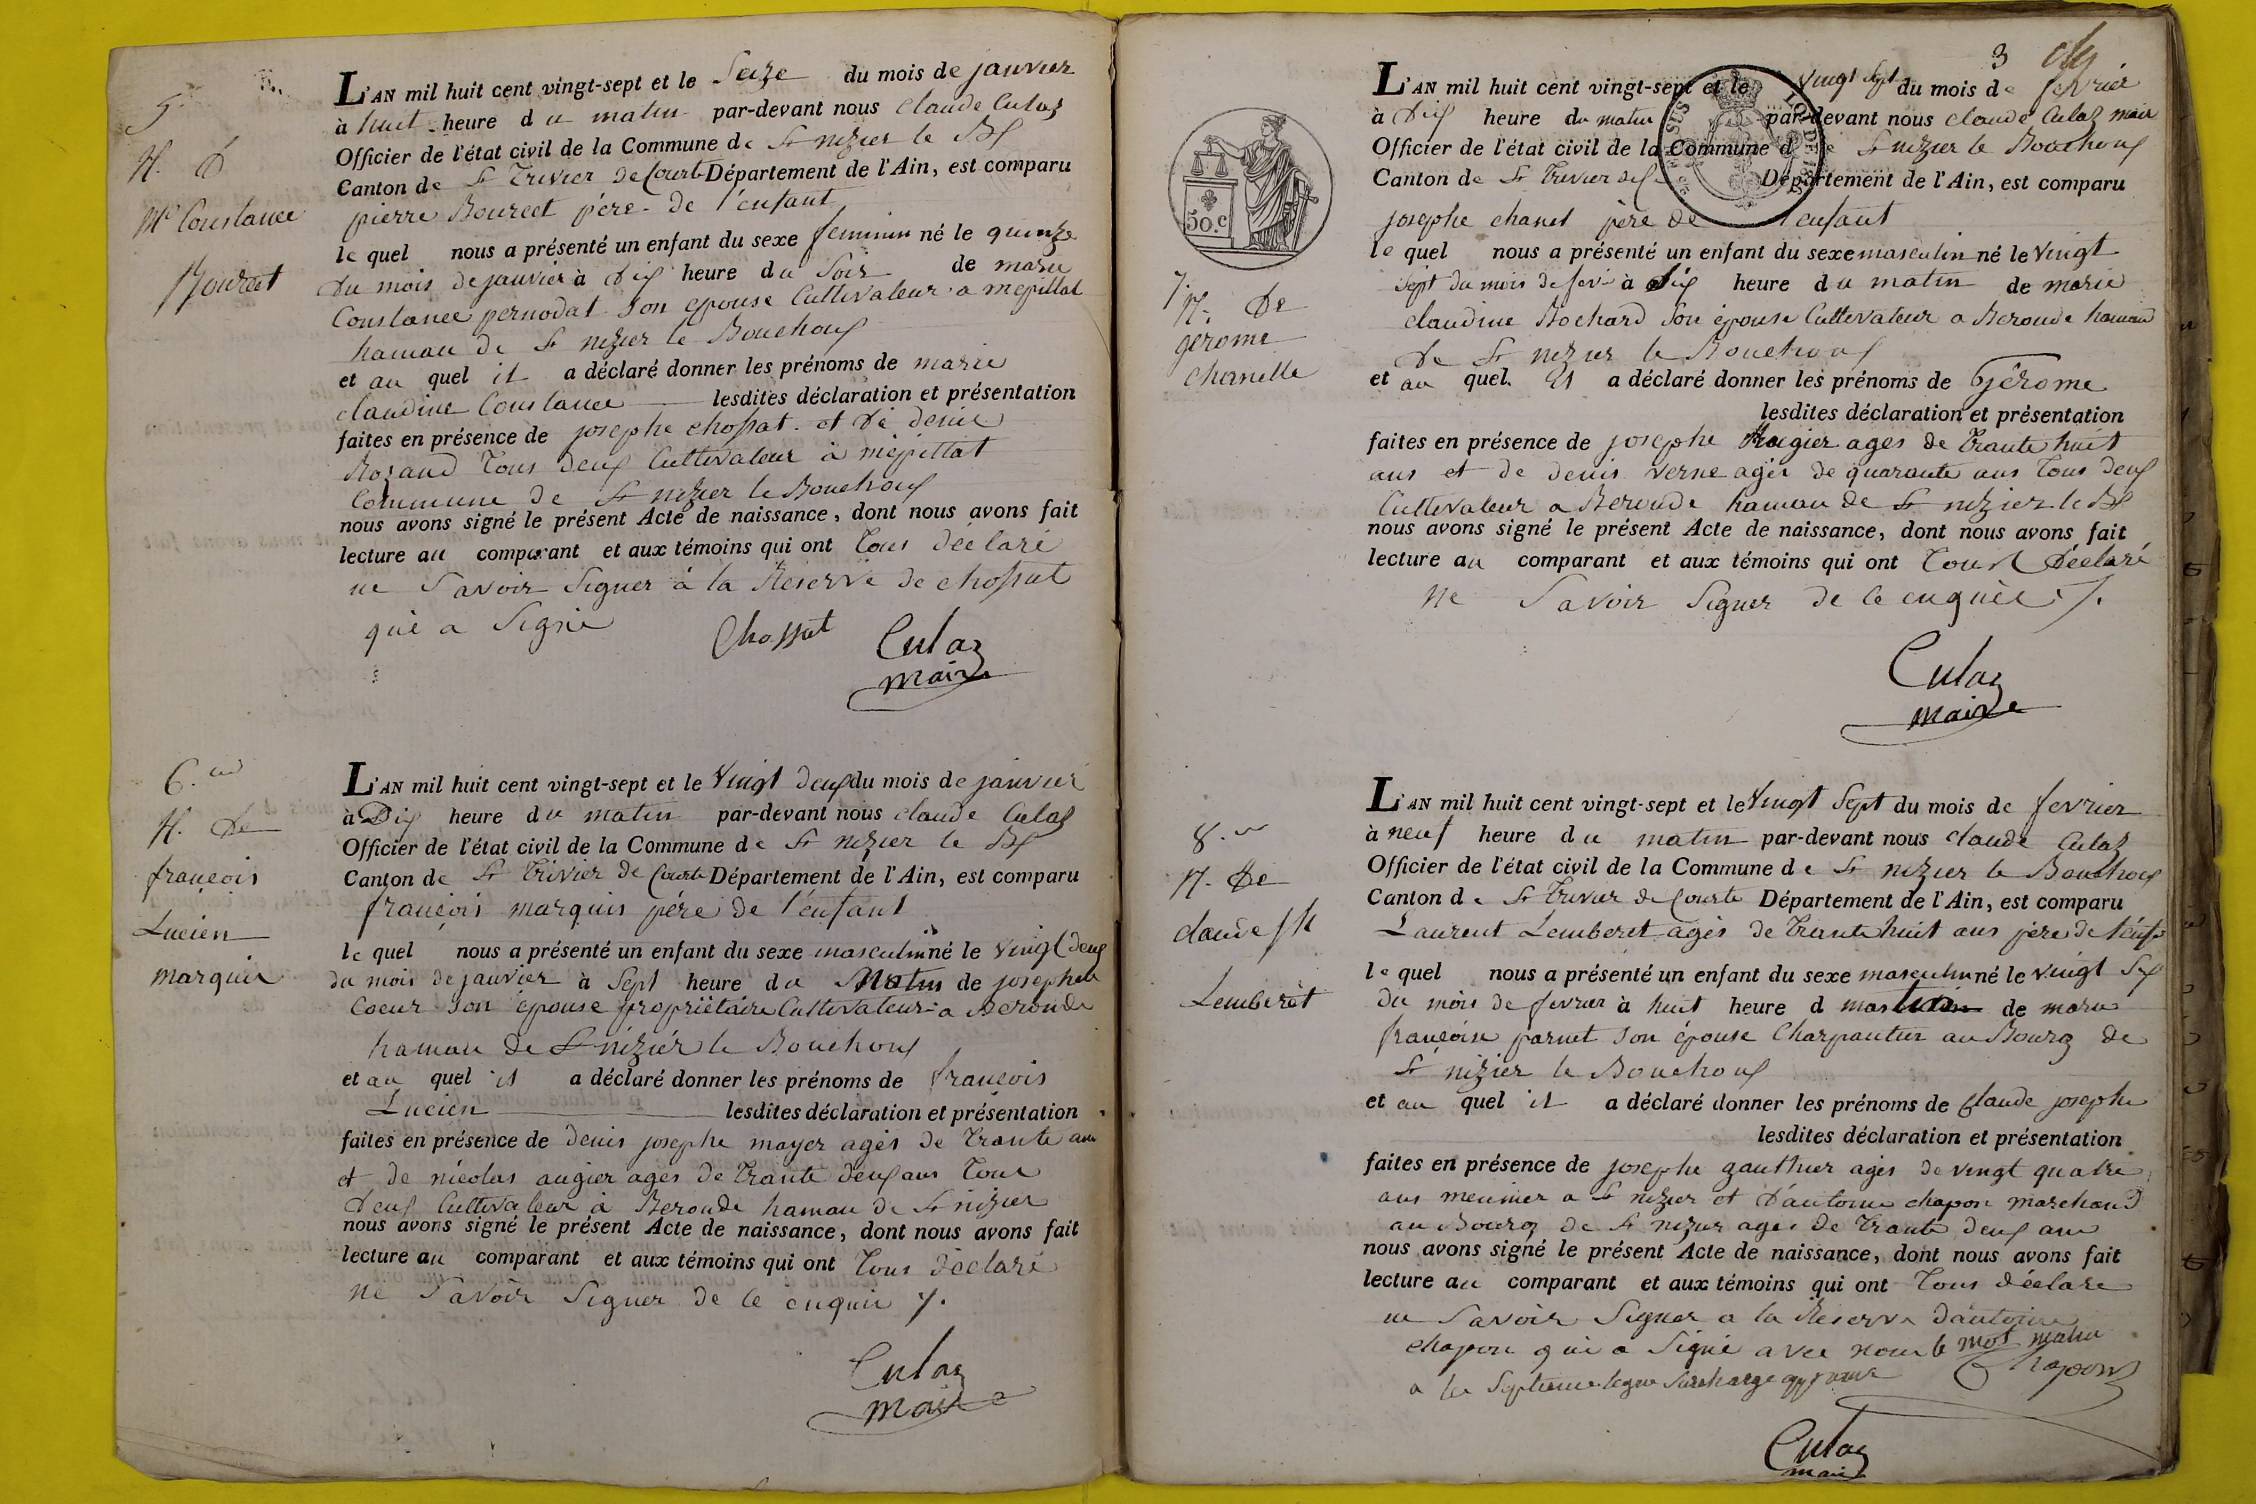 5.
N. D
Mie Constance
Bourcet
L'AN mil huit cent vingt-sept et le Seize du mois de janvier
à huit heure du matin par-devant nous claude Culaz
Officier de l'état civil de la Commune de St nizier le Bx
Canton de St Trivier de Courte Département de l'Ain, est comparu
pierre Bourcet père de l'enfant
le quel nous a présenté un enfant du sexe feminin né le quinze
du mois de janvier à Dix heure du Soir de marie
Constance pernodat son epouse Cultivateur a mepillat
hamau de St nizier le Bouchoux
et au quel il a déclaré donner les prénoms de marie
claudine Constance lesdites déclaration et présentation
faites en présence de josephe chossat. et de denie
Rozand Tous deux Cultivateur à mépillat
Commune de St nizier le Bouchoux
nous avons signé le présent Acte de naissance, dont nous avons fait
lecture au comparant et aux témoins qui ont Tous déclaré
ne Savoir Signer à la Réserve de chossat
qui a Signé
Chossat Culaz
maire
6.me
N. De
françois
Lucien
marquis
L'AN mil huit cent vingt-sept et le Vingt deux du mois de janvier
à Dix heure du matin par-devant nous claude Culaz
Officier de l'état civil de la Commune de St nizier le Bx
Canton de St Trivier de Courte Département de l'Ain, est comparu
françois marquis père de l'enfant
le quel nous a présenté un enfant du sexe masculin né le vingt deux
du mois de janvier à Sept heure du Matin de josephe
Coeur son épouse propriétaire Cultivateur a Beronde
hamau de St nizier le Bouchoux
et au quel il a déclaré donner les prénoms de françois
Lucien lesdites déclaration et présentation
faites en présence de denis josephe mayer agés de Trante ans
et de nicolas augier agés de Trante deux ans Tous
deux Cultivateur à Beronde hamau de St nizier
nous avons signé le présent Acte de naissance, dont nous avons fait
lecture au comparant et aux témoins qui ont Tous déclaré
ne Savoir Signer de ce enquis /.
Culaz
maire
3
50.c
7.
N. De
gérome
chanelle
L'AN mil huit cent vingt-sept et le vingt Sept du mois de fevrier
à Dix heure du matin par-devant nous claude Culaz maire
Officier de l'état civil de la Commune de St nizier le Bouchoux
Canton de St Trivier de C Département de l'Ain, est comparu
josephe chanel père de l'enfant
le quel nous a présenté un enfant du sexe masculin né le Vingt
Sept du mois de fevr à Six heure du matin de marie
claudine Bochard son épouse Cultivateur a Beronde hamau
de St nizier le Bouchoux
et au quel il a déclaré donner les prénoms de Gérome
lesdites déclaration et présentation
faites en présence de josephe Augier agés de Trante huit
ans et de denis verne agés de quarante ans Tous deux
Cultivateur a Beronde hamau de St nizier le Bx
nous avons signé le présent Acte de naissance, dont nous avons fait
lecture au comparant et aux témoins qui ont Tous déclaré
ne Savoir Signer de ce enquis /.
Culaz
maire
8.me
N. De
claude jh
Lemberet
L'AN mil huit cent vingt-sept et le Vingt Sept du mois de fevrier
à neuf heure du matin par-devant nous claude Culaz
Officier de l'état civil de la Commune de St nizier le Bouchoux
Canton de St Trivier de Courte Département de l'Ain, est comparu
Laurent Lemberet agés de Trante huit ans père de l'enfa
le quel nous a présenté un enfant du sexe masculin né le vingt Six
du mois de fevrier à huit heure d matin de marie
françoise parnet son épouse Charpantier au Bourg de
St nizier le Bouchoux
et au quel il a déclaré donner les prénoms de Claude josephe
lesdites déclaration et présentation
faites en présence de josephe gauthier agés de vingt quatre
ans meunier a St nizier et d'antoine chapon marchand
au Bourg de St nizier agés de Trante deux ans
nous avons signé le présent Acte de naissance, dont nous avons fait
lecture au comparant et aux témoins qui ont Tous déclaré
ne Savoir Signer a la Réserve d'antoine
chapon qui a Signé avec nous le mot matin
a la Septieme legne Surcharge approuvé Chapon
Culaz
maire